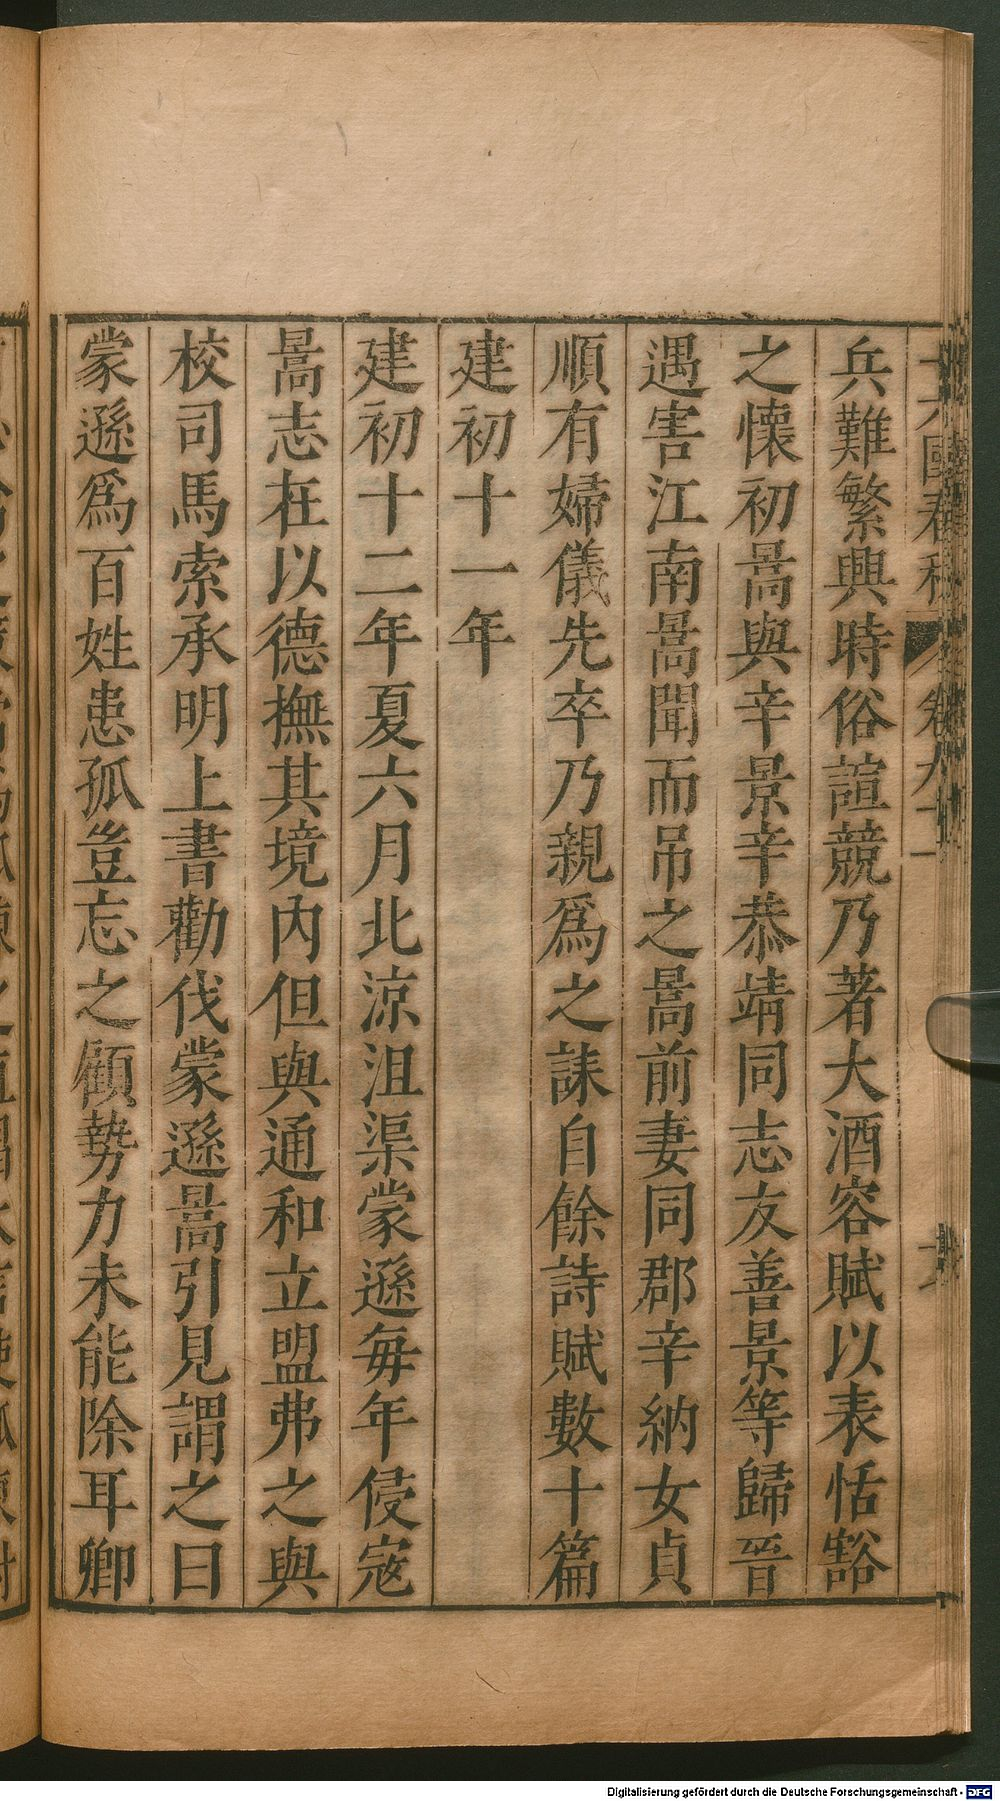 兵難繁興時俗諠競乃著大酒容賦以表恬豁
之懷初暠與辛景辛恭靖同志友善景等歸晉
遇害江南暠聞而吊之暠前妻同郡辛納女貞
順有婦儀先卒乃親爲之誄自餘詩賦數十篇
建初十一年
建初十二年夏六月北涼沮渠蒙遜每年侵寇
暠志在以德撫其境內但與通和立盟弗之與
校司馬索承明上書勸伐蒙遜暠引見謂之曰
蒙遜爲百姓患孤豈忘之顧勢力未能除耳卿
Digitalisierung gefördert durch die Deutsche Forschungsgemeinschaft - DFG